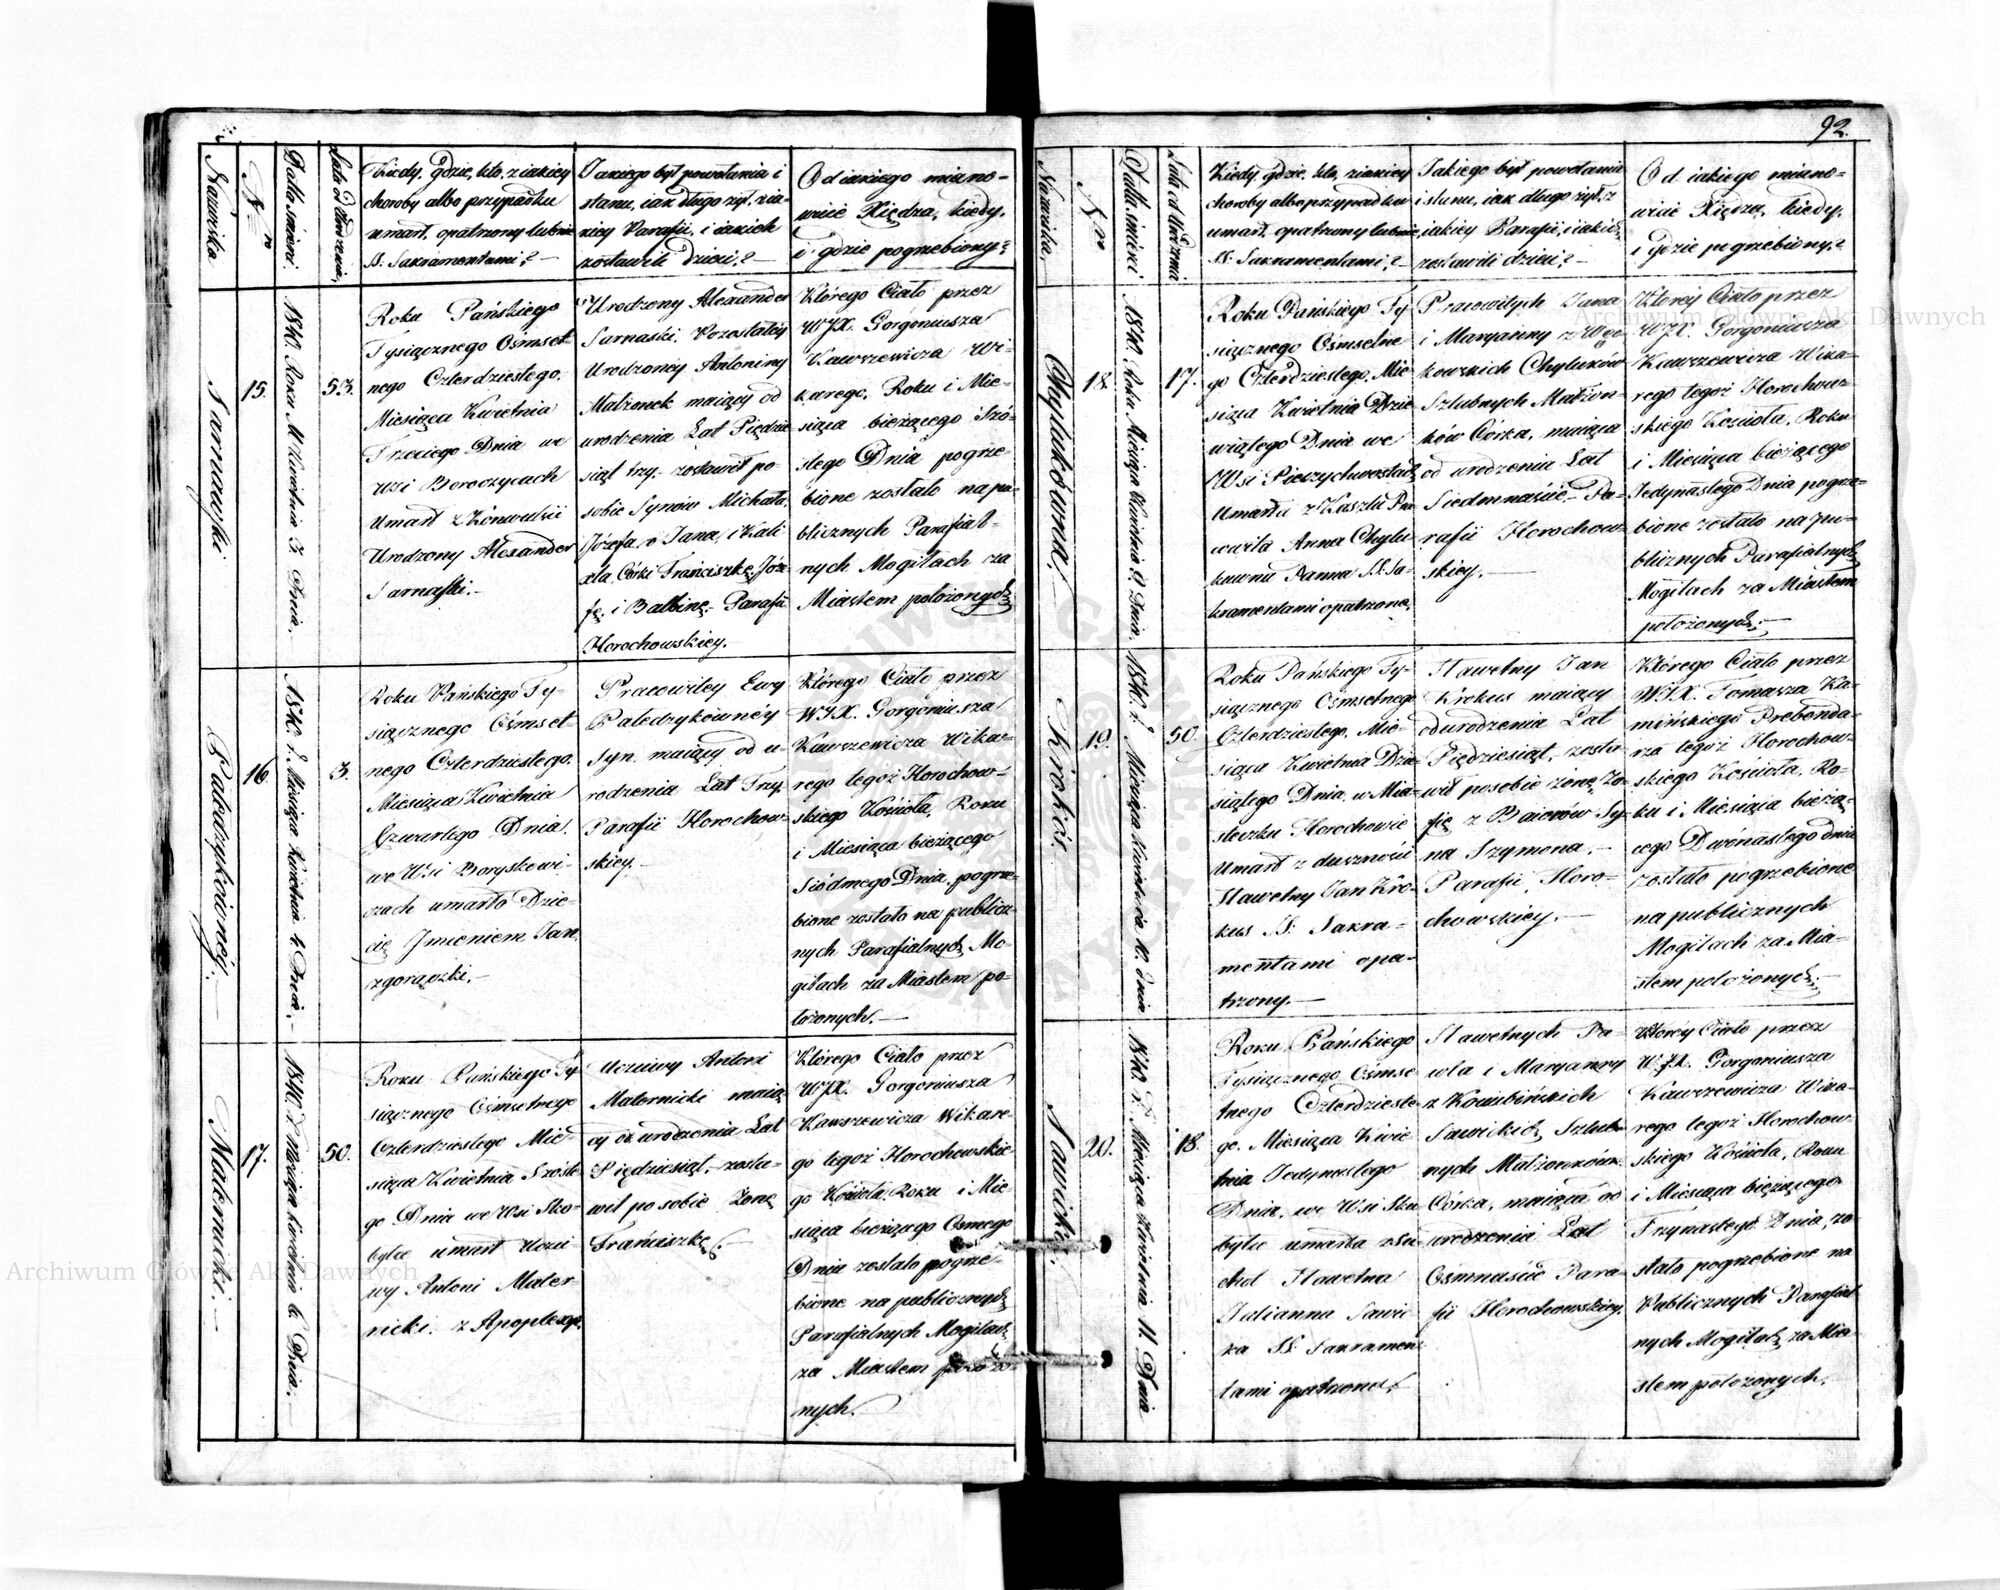 Nazwiska
Nro
Datta śmierci
Lata od Urodzenia
Kiedy, gdzie, kto, z iakiey
choroby albo przypadku
umarł, opatrzony lub nie
SS: Sakramentami?—
Jakiego był powołania i
stanu, iak długo żył, z ia-
kiey Parafii, i iakich
zostawił Dzieci?—
Od iakiego miano-
wicie Xiędza, kiedy,
i gdzie pogrzebiony?
Sarnawski
15.
1840. Roku M. Kwietnia 3. Dnia.
53.
Roku Pańskiego
Tysiącznego Ośmset-
nego Czterdziestego.
Miesiąca Kwietnia
Trzeciego Dnia we
wsi Boroczycach
Umarł z Konwulsii
Urodzony Alexander
Sarnaski.—
Urodzony Alexander
Sarnaski. Pozostałey
Urodzoney Antoniny
Małżonek maiący od
urodzenia Lat Pięćdzie
siąt trzy. zostawił po-
sobie Synów Michała,
Józefa, Jana, i Kali
xta, Córki Franciszkę, Józe
fę, i Balbinę. Parafii
Horochowskiey.
Którego Ciało przez
WJX. Gorgoniusza
Kawrzewicza Wi-
karego, Roku i Mie-
siąca bieżącego Szó-
stego Dnia pogrze-
bione zostało na pu-
blicznych Parafial-
nych Mogiłach za
Miastem położonych
Paledzykówney.—
16
1840. r. Miesiąca Kwietnia 4. Dnia.—
3.
Roku Pańskiego Ty-
siącznego Ośmset-
nego Czterdziestego.
Miesiąca Kwietnia
Czwartego Dnia.
we Wsi Boryskowi-
czach umarło Dzie-
cię Jmieniem Jan
z gorączki.—
Pracowitey Ewy
Paledzykówney
Syn. maiący od u-
rodzenia Lat Trzy.
Parafii Horochow-
skiey.—
Którego Ciało przez
WJX. Gorgoniusza
Kawrzewicza Wika-
rego tegoż Horochow-
skiego Kościoła, Roku
i Miesiąca bieżącego
Siódmego Dnia, pogrze-
bione zostało na publicz-
nych Parafialnych Mo-
giłach za Miastem po-
łożonych.—
Maternicki.—
17.
1840. r. Miesiąca Kwietnia 6. Dnia.—
50.
Roku Pańskiego Ty
siącznego Ośmsetnego
Czterdziestego Mie-
siąca Kwietnia Szóste-
go Dnia we Wsi Sko-
bylce umarł Uczci-
wy Antoni Mater-
nicki. z Apoplexyi.
Uczciwy Antoni
Maternicki maią
cy od urodzenia Lat
Pięćdziesiąt, zosta-
wił po sobie Żonę
Franciszkę.
Którego Ciało przez
WJX. Gorgoniusza
Kawrzewicza Wikare-
go tegoż Horochowskie-
go Kościoła, Roku i Mie-
siąca bieżącego Osmego
Dnia zostało pogrze-
bione na publicznych
Parafialnych Mogiłach
za Miastem położo-
nych.
92.
Nazwiska
Nro
Datta śmierci
Lata od Urodzenia
Kiedy, gdzie, kto, z iakiey
choroby albo przypadku
umarł, opatrzony lub nie,
SS: Sakramentami?—
Jakiego był powołania
i stanu, iak długo żył, z
iakiey Parafii, i iakich
zostawił dzieci?—
Od iakiego miano-
wicie Xiędza, kiedy,
i gdzie pogrzebiony?
Chylukówna.
18.
1840. Roku Miesiąca Kwietnia 9. Dnia.
17.
Roku Pańskiego Ty
siącznego Ośmsetne-
go Czterdziestego. Mie-
siąca Kwietnia Dzie
wiątego Dnia we
Wsi Pieczychwostach
Umarła z Kaszlu Pra
cowita Anna Chylu
kówna Panna SS: Sa-
kramentami opatrzona.
Pracowitych Jana
i Maryanny z Wę-
kowskich Chyluków
Szlubnych Małżon-
ków Córka, maiąca
od urodzenia Lat
Siedmnaście.— Pa-
rafii Horochow-
skiey.—
Którey Ciało przez
WJX. Gorgoniusza
Kawrzewicza Wika-
rego tegoż Horochow-
skiego Kościoła, Roku
i Miesiąca bieżącego
Jedynastego Dnia pogrze-
bione zostało na pu-
blicznych Parafialnych
Mogiłach za Miastem
położonych.—
19.
1840. r. Miesiąca Kwietnia 10. Dnia
50.
Roku Pańskiego Ty-
siącznego Ośmsetnego
Czterdziestego, Mie-
siąca Kwietnia Dzie-
siątego Dnia, w Mia-
steczku Horochowie
Umarł z duszności
Sławetny Jan Kro-
kus SS: Sakra-
mentami opa-
trzony.—
Sławetny Jan
Krokus maiący
od urodzenia Lat
Pięćdziesiąt, zosta
wił po sobie żonę Zo-
fię z Baierów Sy-
na Szymona.—
Parafii, Horo-
chowskiey.—
Którego Ciało przez
WJX. Tomasza Ka-
mińskiego Prebenda-
rza tegoż Horochow-
skiego Kościoła, Ro-
ku i Miesiąca bieżą-
cego Dwónastego dnia
zostało pogrzebione
na publicznych
Mogiłach za Mia-
stem położonych.—
Sawicka.
20.
1840. r. Miesiąca Kwietnia 11. Dnia
18.
Roku Pańskiego
Tysiącznego Ośmse
tnego Czterdzieste-
go. Miesiąca Kwie
tnia Jedynastego
Dnia, we Wsi Sko
bylce umarła z Su
chot Sławetna
Julianna Sawic
ka SS: Sakramen
tami opatrzona.
Sławetnych Pa-
wła i Maryanny
z
Sawickich Szlub-
nych Małżonków.
Córka, maiąca od
urodzenia Lat
Ośmnaście Para-
fii Horochowskiey.
Którey Ciało przez
WJX. Gorgoniusza
Kawrzewicza Wika-
rego tegoż Horochow-
skiego Kościoła, Roku
i Miesiąca bieżącego
Trzynastego Dnia, zo-
stało pogrzebione na
Publicznych Parafial
nych Mogiłach za Mia-
stem położonych.
Archiwum Główne Akt Dawnych
Archiwum Główne Akt Dawnych